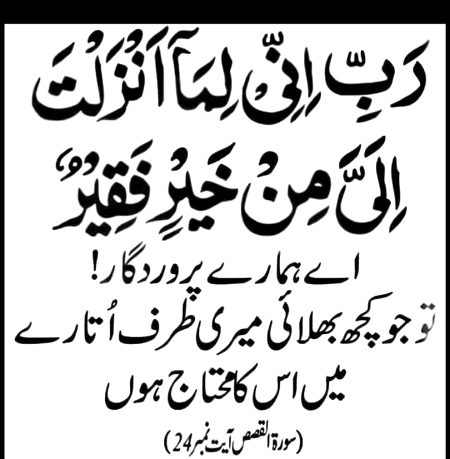 رَبِّ اِنِّیْ لِمَاۤ اَنْزَلْتَ
اِلَیَّ مِنْ خَیْرٍ فَقِیْرٌ
اے ہمارے پروردگار!
تو جو کچھ بھلائی میری طرف اُتارے
میں اس کا محتاج ہوں
(سورۃ القصص آیت نمبر 24)